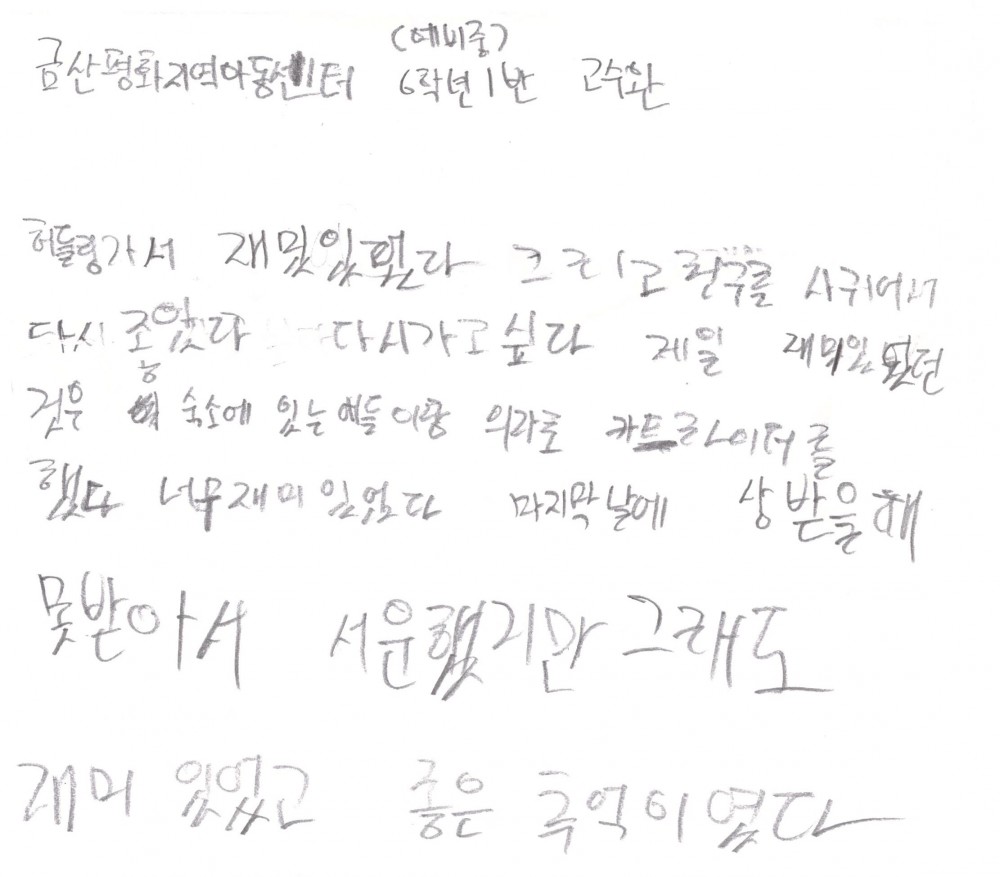 (예비중)
금산평화지역아동센터 6학년1반 고수완
허들링가서 재밌있었다 그리고 친구를 사귀어서
다시 좋았다 다시가고싶다 제일 재미있었던
것은 숙소에 있는 애들이랑 의자로 카트라이더를
했다 너무재미 있었다 마지막날에 상받을때
못받아서 서운했지만 그래도
재미 있었고 좋은 추억이였다